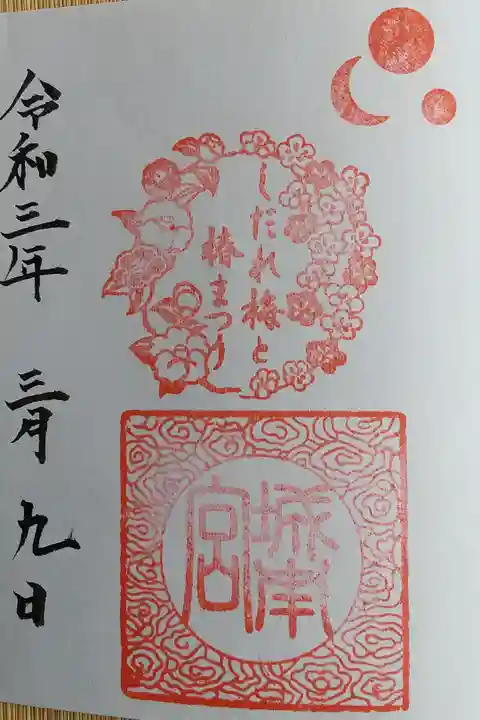 しだれ梅と
椿まつり
城南
宮
令和三年 三月 九日